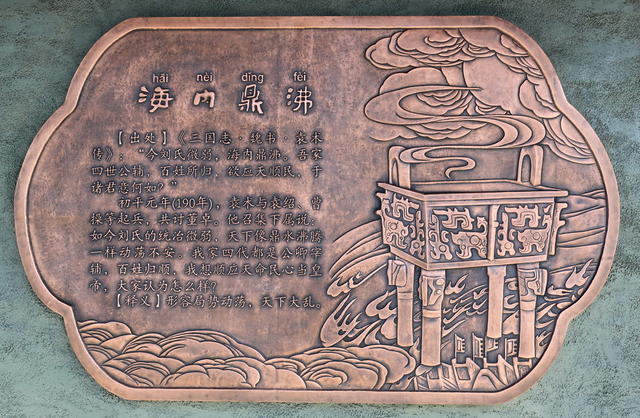 hǎi nèi dǐng fèi
海内鼎沸
【出处】《三国志·魏书·袁术
传》："今刘氏微弱，海内鼎沸。吾家
四世公辅，百姓所归，欲应天顺民，于
诸君意何如？"
初平元年(190年)，袁术与袁绍、曹
操等起兵，共讨董卓。他召集下属说：
如今刘氏的统治微弱，天下像鼎水沸腾
一样动荡不安。我家四代都是公卿宰
辅，百姓归顺，我想顺应天命民心当皇
帝，大家认为怎么样？
【释义】形容局势动荡，天下大乱。